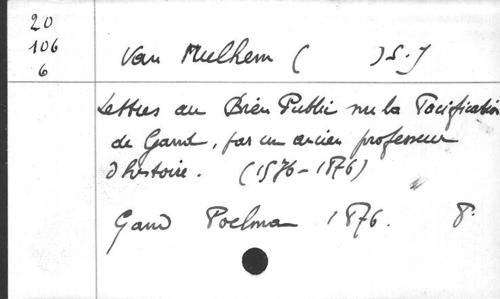 20
106
6
Van Mulhem ( ) S. J
Lettres au Bien Public sur la Pacification
de Gand, par un ancien professeur
d'histoire. (1576-1876)
Gand Poelman 1876. 8º